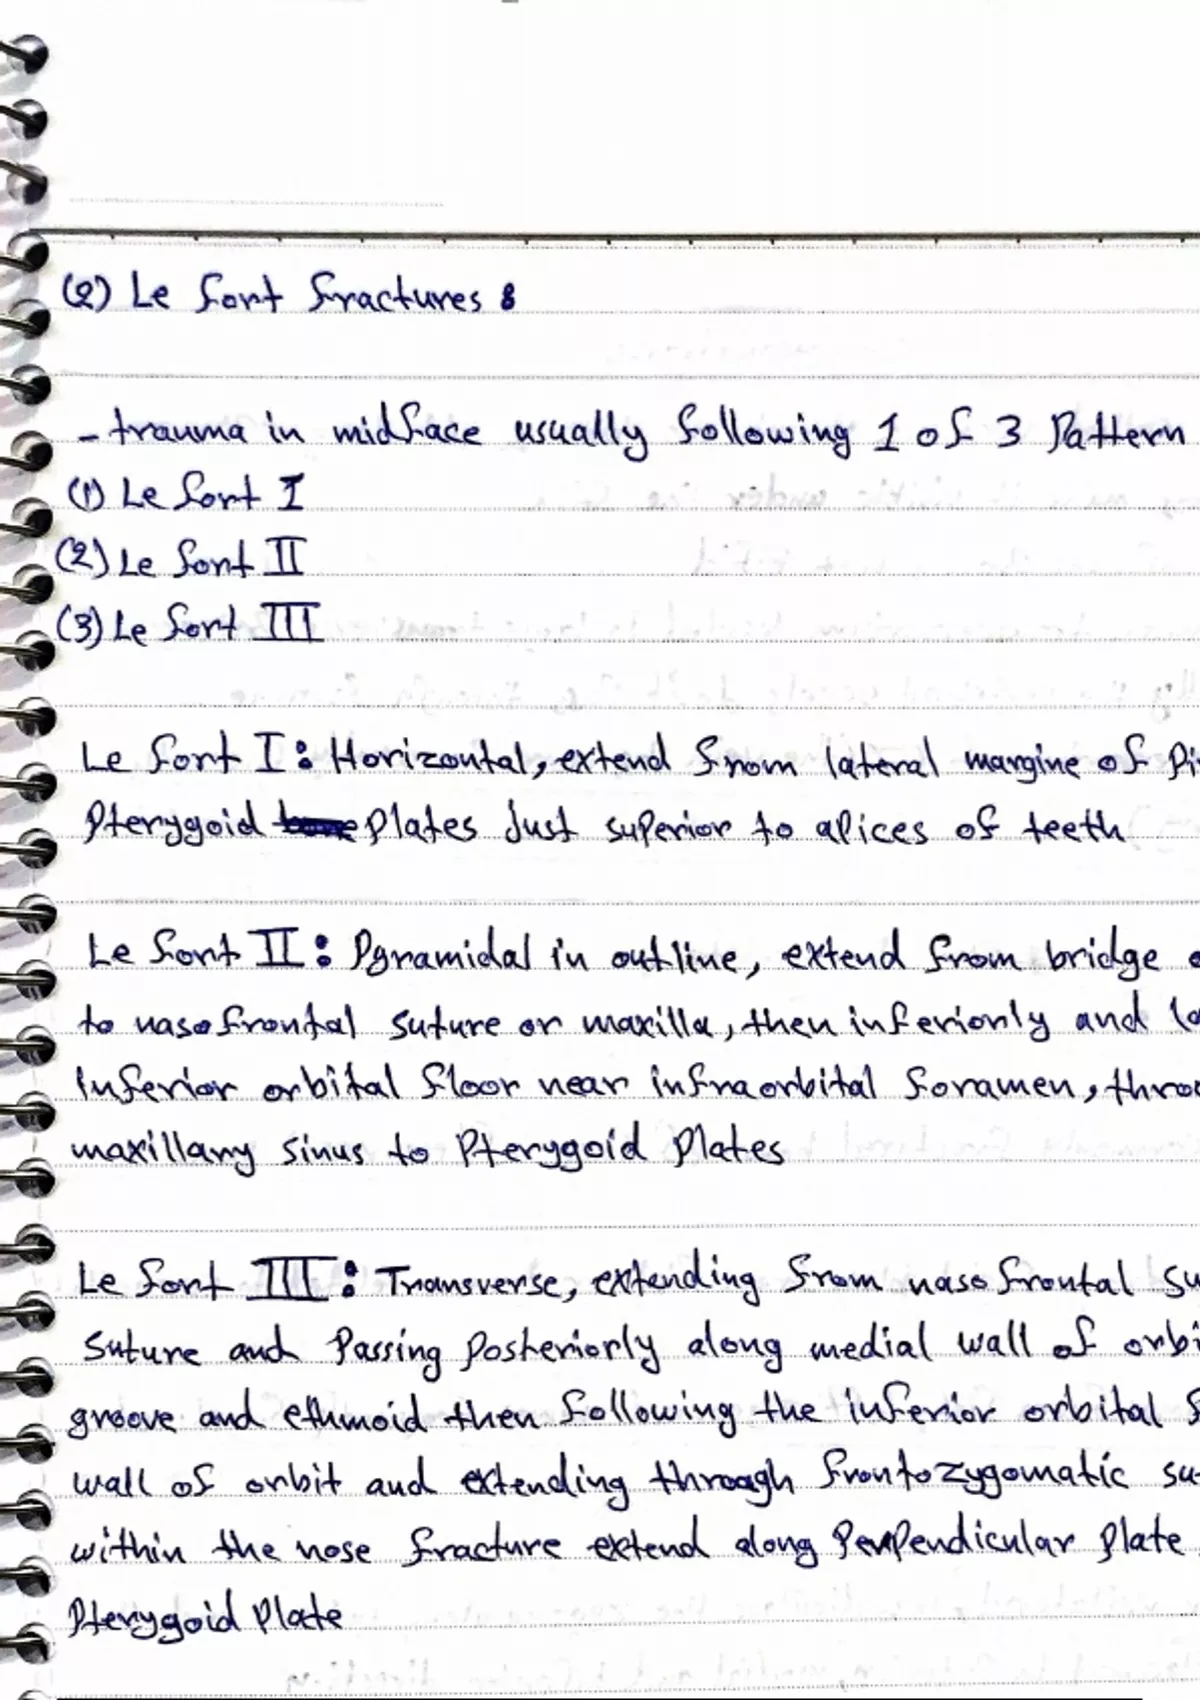 (2) Le fort fractures :
- trauma in midface usually following 1 of 3 Pattern
(1) Le fort I
(2) Le fort II
(3) Le fort III
Le fort I : Horizontal, extend from lateral margine of Pi
Pterygoid plates just superior to apices of teeth
Le fort II : Pyramidal in outline, extend from bridge
to nasofrontal suture or maxilla, then inferiorly and la
inferior orbital floor near infraorbital foramen, throu
maxillary sinus to Pterygoid plates
Le fort III : Transverse, extending from nasofrontal su
suture and Passing Posteriorly along medial wall of orbi
groove and ethmoid then following the inferior orbital f
wall of orbit and extending through frontozygomatic su
within the nose fracture extend along Perpendicular plate
Pterygoid Plate